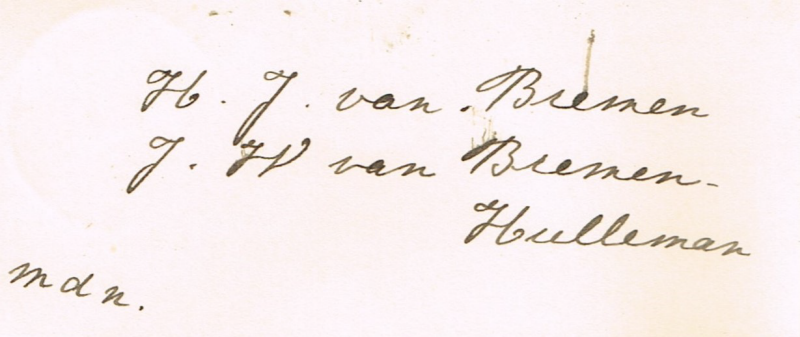 H. J. van Bremen
J. W van Bremen-
Hulleman
mdn.